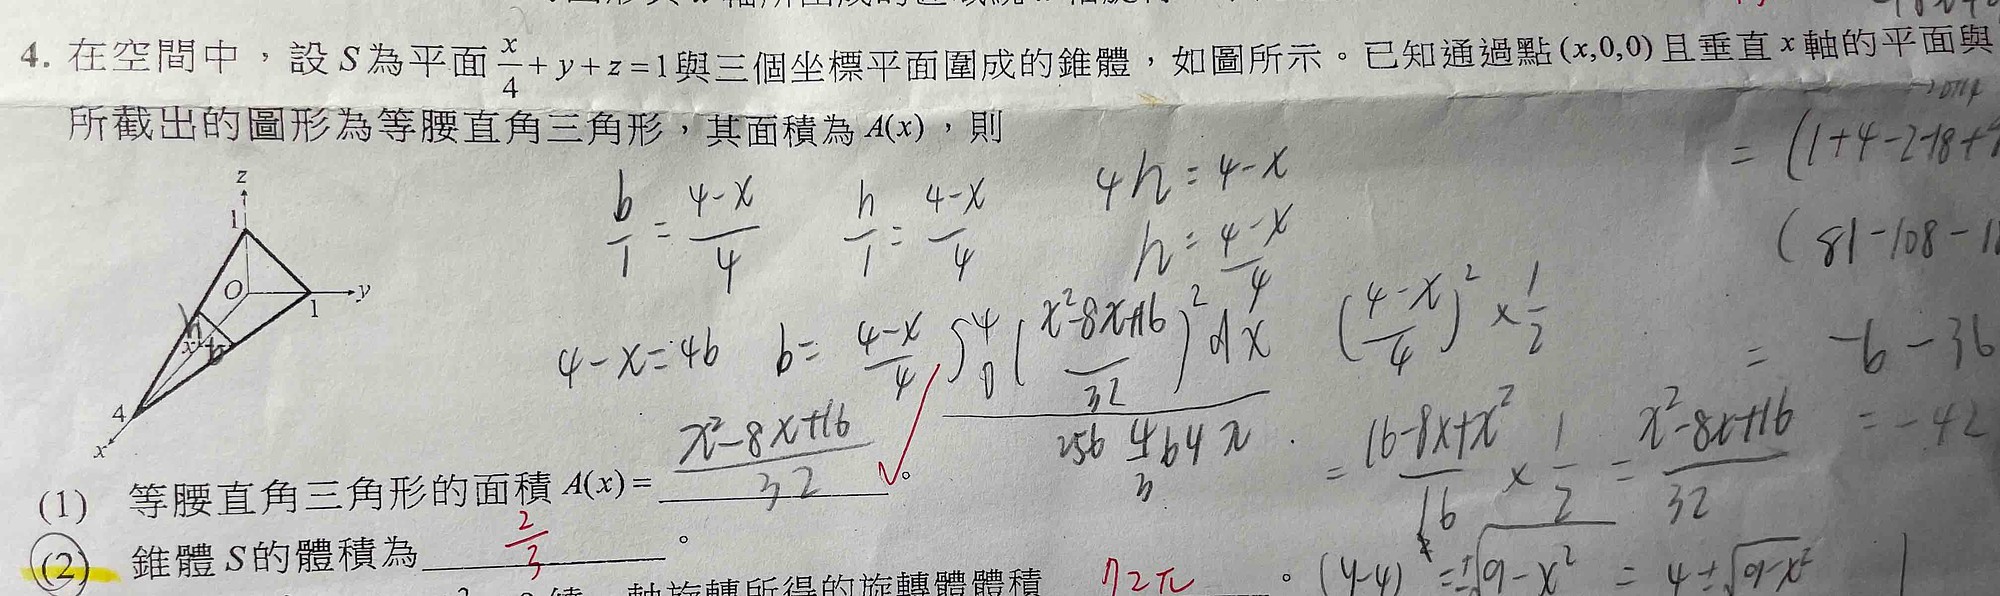 4. 在空間中，設 S 為平面 x/4 + y + z = 1 與三個坐標平面圍成的錐體，如圖所示。已知通過點 (x,0,0) 且垂直 x 軸的平面與
所截出的圖形為等腰直角三角形，其面積為 A(x)，則
= (1+4-2-18+
z
1
O
y
1
x
4
x
h
b
b/1 = 4-x/4
h/1 = 4-x/4
4h = 4-x
h = 4-x/4
(81-108-18
4-x=4b
b = 4-x/4
∫₀⁴ (x²-8x+16/32)² dx
(4-x/4)² × 1/2
= -6-36
256
= 16-8x+x²/16 × 1/2 = x²-8x+16/32
= -42
(1) 等腰直角三角形的面積 A(x) = x²-8x+16/32 。
(2) 錐體 S 的體積為 2/3 。
軸旋轉所得的旋轉體體積 72π 。
(y-4) = ±√9-x² = 4±√9-x²